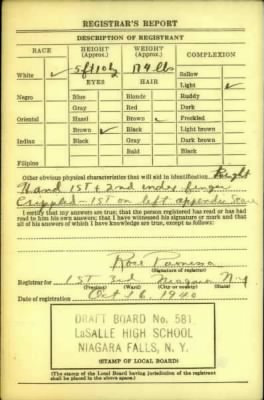 REGISTRAR'S REPORT
DESCRIPTION OF REGISTRANT
RACE HEIGHT (Approx.) WEIGHT (Approx.) COMPLEXION
White ✓ 5 ft 10 1/2 174 lbs Sallow
EYES HAIR Light ✓
Negro Blue Blonde Ruddy
Gray Red Dark
Oriental Hazel Brown ✓ Freckled
Brown ✓ Black Light brown
Indian Black Gray Dark brown
Bald Black
Filipino
Other obvious physical characteristics that will aid in identification Right
Hand 1ST & 2nd index finger
Crippled - 1ST on left appendix Scar
I certify that my answers are true; that the person registered has read or has had
read to him his own answers; that I have witnessed his signature or mark and that
all of his answers of which I have knowledge are true, except as follows:
Rose
(Signature of registrar)
Registrar for 1ST 3rd Niagara N.Y
(Precinct) (Ward) (City or county) (State)
Date of registration Oct 16, 1940
DRAFT BOARD No. 581
LaSALLE HIGH SCHOOL
NIAGARA FALLS, N. Y.
(STAMP OF LOCAL BOARD)
(The stamp of the Local Board having jurisdiction of the registrant
shall be placed in the above space.)